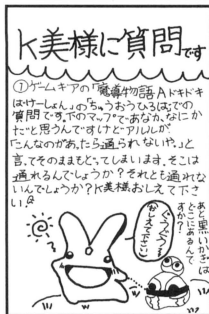 K美様に質問です
①ゲームギアの「魔導物語Aドキドキ
ばけーしょん」の「ちゅうおうひろば」での
質問です。下のマップであな、なにか
だと思うんですけどアルルが
「こんなのがあったら通られないや。」と
言ってそのままもどってしまいます。そこは
通れるんでしょうか？それとも通れな
いんでしょうか？K美様おしえて下さ
い。
あと黒いかぎは
どこにあるんで
すか？
おしえて下さい